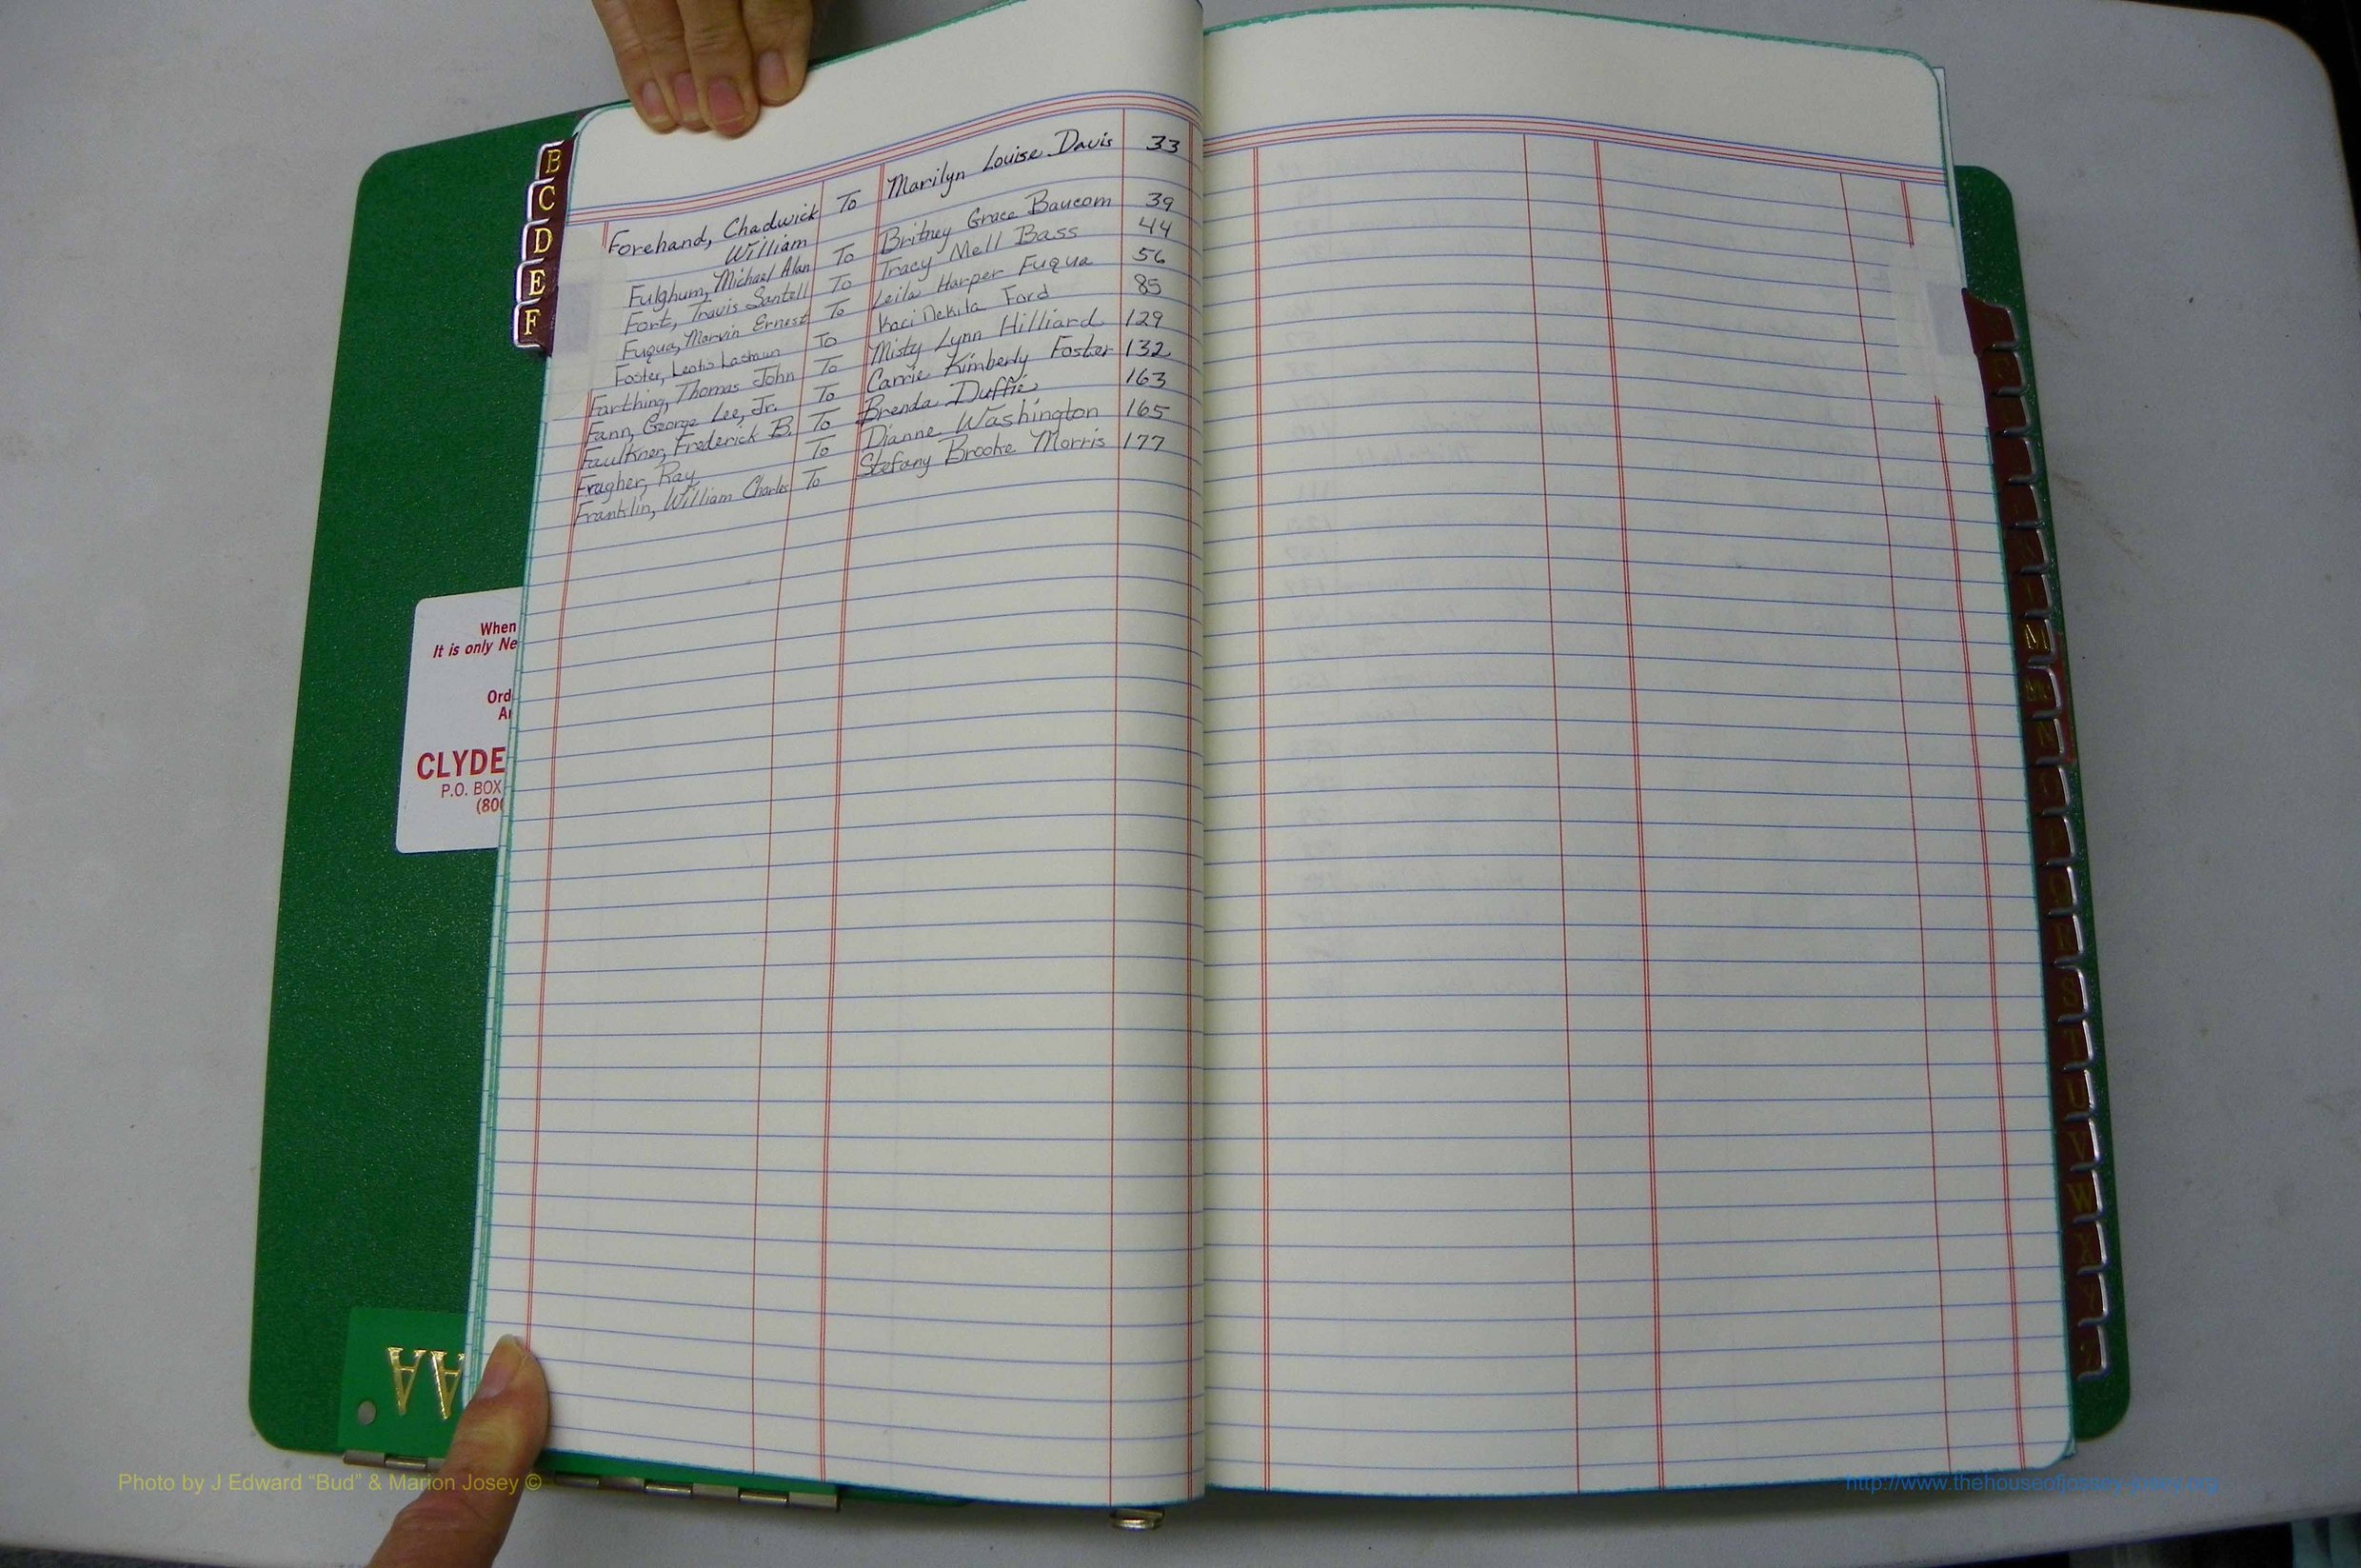 Forehand, Chadwick To Marilyn Louise Davis 33
William
Fulghum, Michael Alan To Britney Grace Baucom 39
Fort, Travis Santell To Tracy Mell Bass 44
Fuqua, Marvin Ernest To Leila Harper Fuqua 56
Foster, Leotis Lashaun To Kaci Nekita Ford 85
Farthing, Thomas John To Misty Lynn Hilliard 129
Fann, George Lee, Jr. To Carrie Kimberly Foster 132
Faulkner, Frederick B. To Brenda Duffie 163
Fragher, Ray To Dianne Washington 165
Franklin, William Charles To Stefany Brooke Morris 177
B
C
D
E
F
When
It is only Ne
Ord
CLYDE
P.O. BOX
(800
AA
M
M
N
O
P
Q
R
S
T
U
V
W
X
Y
Z
Photo by J Edward “Bud” & Marion Josey ©
http://www.thehouseofjossey-josey.org